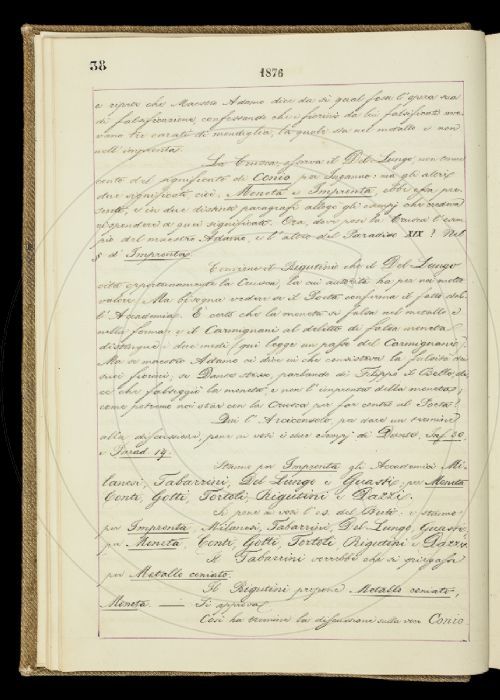 38
1876
e ripete che Maestro Adamo dice da sè qual fosse l'opera sua
di falsificazione, confessando che i fiorini da lui falsificati ave-
vano tre carati di mondiglia, la quale sta nel metallo e non
nell'impronta.
La Crusca, osserva il Del Lungo, non tenne
conto del significato di Conio per Inganno: ma gli altri
due significati, cioè, Moneta e Impronta, ebbe essa pre-
senti, e in due distinti paragrafi allegò gli esempj che credeva
rispondere a quei significati. Ora, dove pose la Crusca l'esem-
pio del maestro Adamo, e l'altro del Paradiso XIX? Nel
§ d'Impronta.
Conviene il Rigutini che il Del Lungo
cita opportunamente la Crusca, la cui autorità ha per noi molto
valore. Ma bisogna vedere se il Poeta conferma il fatto del-
l'Accademia. È certo che la moneta si falsa nel metallo e
nella forma; e il Carmignani al delitto di falsa moneta
distingue i due modi (qui legge un passo del Carmignani).
Ma se maestro Adamo ci dice in che consisteva la falsità de'
suoi fiorini; se Dante stesso, parlando di Filippo il Bello, di-
ce che falseggiò la moneta e non l'impronta della moneta;
come potremo noi star con la Crusca per far contro al Poeta?
Qui l'Arciconsolo, per dare un termine
alla discussione, pone a voti i due esempj di Dante, Inf. 30.
e Parad. 19.
Stanno per Impronta gli Accademici Mi-
lanesi, Tabarrini, Del Lungo e Guasti; per Moneta
Conti, Gotti, Tortoli, Rigutini e Dazzi.
Si pone a voti l'es. del Buti: e stanno
per Impronta, Milanesi, Tabarrini, Del Lungo, Guasti;
per Moneta, Conti, Gotti, Tortoli, Rigutini e Dazzi.
Il Tabarrini vorrebbe che si spiegasse
per Metallo coniato.
Il Rigutini propone Metallo coniato,
Moneta. — Si approva.
Così ha termine la discussione sulla voce Conio